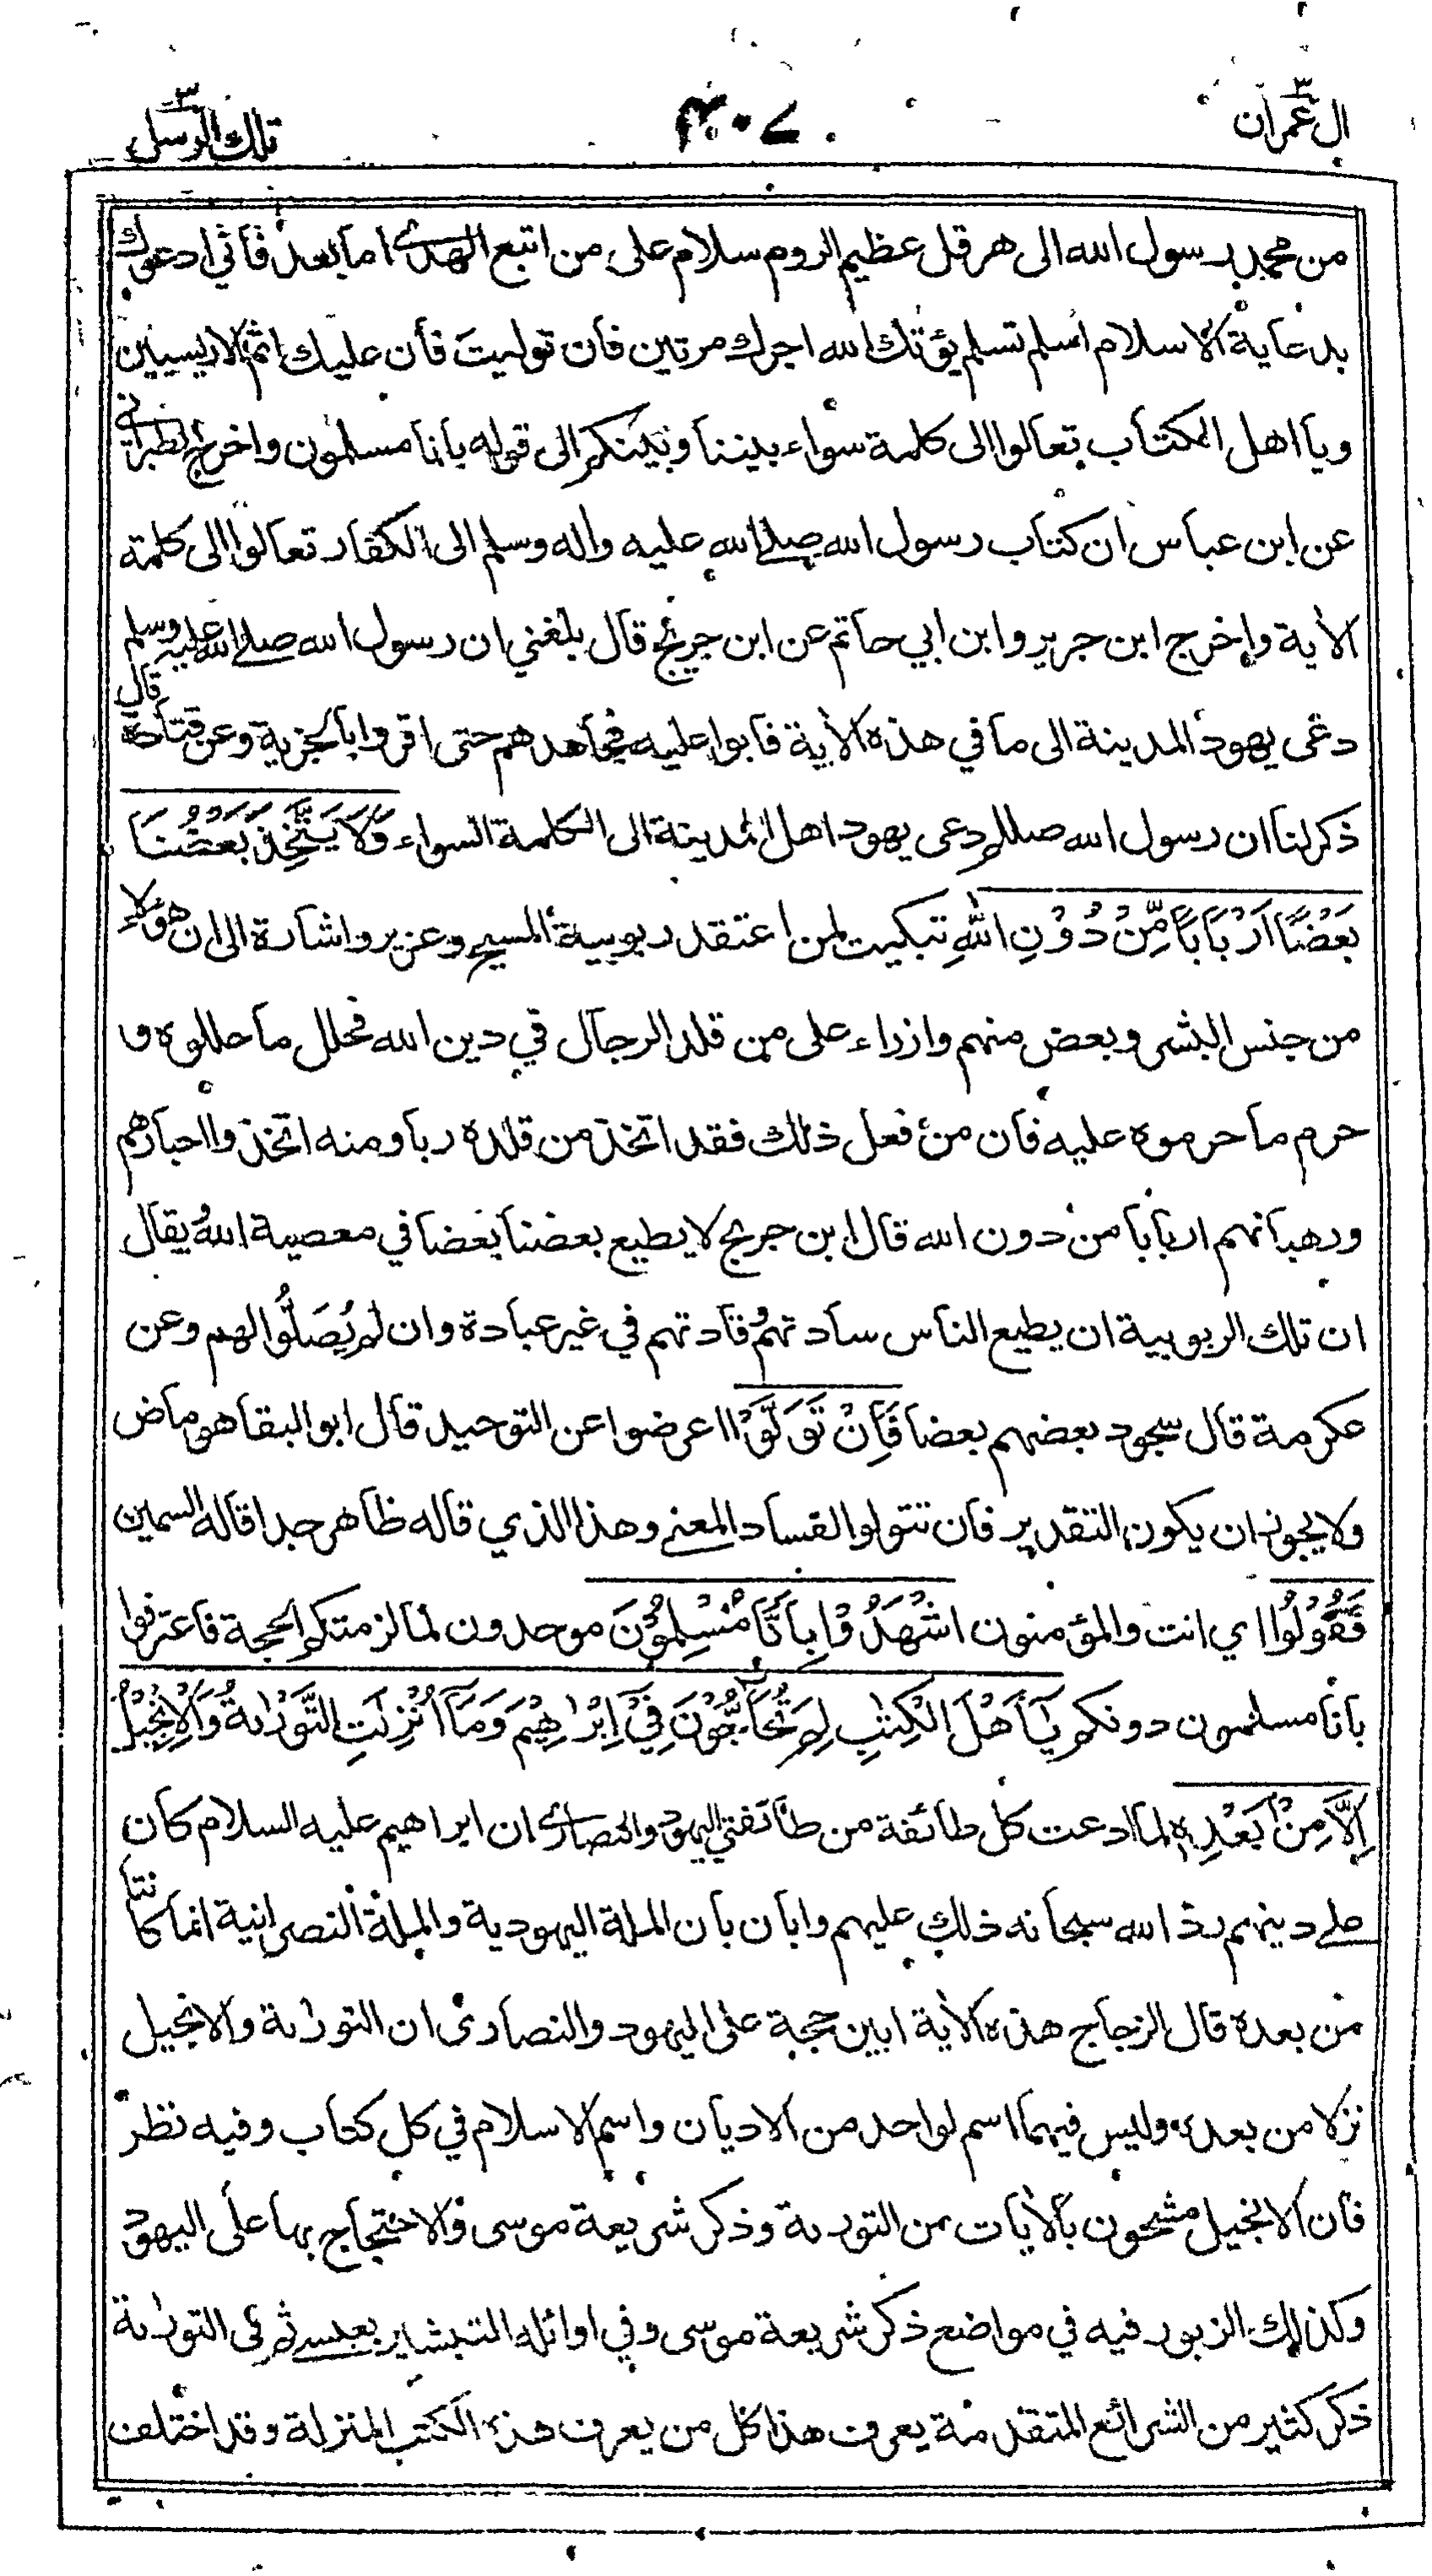 ال عمران ٣
٤٠٧
تلك الرسل ٣
من محمد رسول الله الى هرقل عظيم الروم سلام على من اتبع الهدى اما بعد فاني ادعوك
بدعاية الاسلام اسلم تسلم يؤتك الله اجرك مرتين فان توليت فان عليك اثم الاريسيين
ويا اهل الكتاب تعالوا الى كلمة سواء بيننا وبينكم الى قوله بانا مسلمون واخرج الطبراني
عن ابن عباس ان كتاب رسول الله صلى الله عليه واله وسلم الى الكفار تعالوا الى كلمة
الاية واخرج ابن جرير وابن ابي حاتم عن ابن جريج قال بلغني ان رسول الله صلى الله عليه وسلم
دعى يهود المدينة الى ما في هذه الاية فابوا عليه فجاهدهم حتى اقروا بالجزية وعن قتادة قال
ذكر لنا ان رسول الله صللم دعى يهود اهل المدينة الى الكلمة السواء وَلَا يَتَّخِذَ بَعْضُنَا
بَعْضًا اَرْبَابًا مِّنْ دُوْنِ اللهِ تبكيت لمن اعتقد ربوبية المسيح وعزير واشارة الى ان هؤلاء
من جنس البشر وبعض منهم وازراء على من قلد الرجال في دين الله فحلل ما حللوه و
حرم ما حرموه عليه فان من فعل ذلك فقد اتخذ من قلده ربا ومنه اتخذوا احبارهم
ورهبانهم اربابا من دون الله قال ابن جريج لا يطيع بعضنا بعضا في معصية الله يقال
ان تلك الربوبية ان يطيع الناس سادتهم وقادتهم في غير عبادة وان لم يُصَلُّوا لهم وعن
عكرمة قال سجود بعضهم بعضا فَاِنْ تَوَلَّوْا اعرضوا عن التوحيد قال ابو البقا هو ماض
ولا يجوز ان يكون التقدير فان تتولوا لفساد المعنى وهذا الذي قاله ظاهر جدا قاله السمين
فَقُوْلُوا اي انت والمؤمنون اشْهَدُوْا بِاَنَّا مُسْلِمُوْنَ موحدون لما لزمتكم الحجة فاعترفوا
بانا مسلمون دونكم يٰۤاَهْلَ الْكِتٰبِ لِمَ تُحَاۤجُّوْنَ فِيْۤ اِبْرٰهِيْمَ وَمَاۤ اُنْزِلَتِ التَّوْرٰىةُ وَالْاِنْجِيْلُ
اِلَّا مِنْۢ بَعْدِهٖ لما ادعت كل طائفة من طائفتي اليهود والنصارى ان ابراهيم عليه السلام كان
على دينهم رد الله سبحانه ذلك عليهم وابان بان الملة اليهودية والملة النصرانية انما كانتا
من بعده قال الزجاج هذه الاية ابين حجة على اليهود والنصارى ان التورٰىة والانجيل
نزلا من بعده وليس فيهما اسم لواحد من الاديان واسم الاسلام في كل كتاب وفيه نظر
فان الانجيل مشحون بالايات من التورىة وذكر شريعة موسى والاحتجاج بها على اليهود
وكذلك الزبور فيه في مواضع ذكر شريعة موسى وفي اوائله التبشير بعيسى ثم في التورٰىة
ذكر كثير من الشرائع المتقدمة يعرف هذا كل من يعرف هذه الكتب المنزلة وقد اختلف